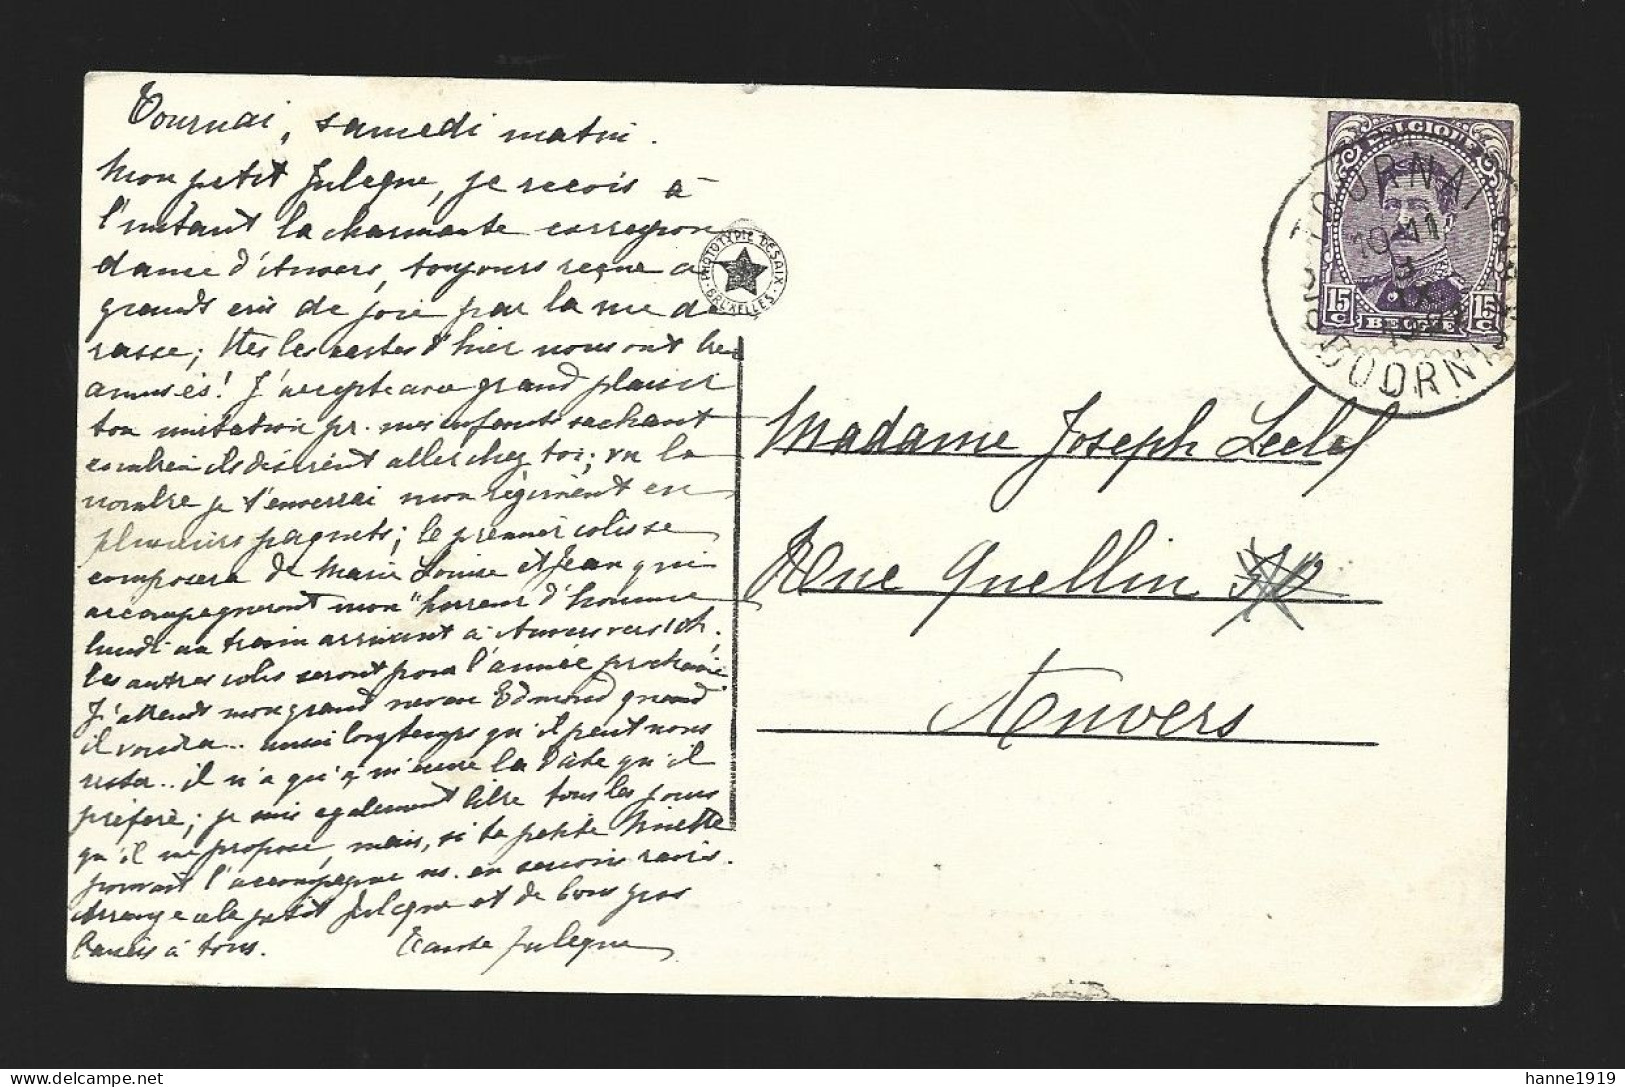 Tournai, samedi matin.
Mon petit Julegne, je reçois à
l'instant la charmante correspon
dance d'Anvers, toujours reçue à
grands cris de joie par la rue de
rasse; Ntes les cartes d'hier nous ont très
amusés! J'accepte avec grand plaisir
ton invitation pr. mes enfants sachant
combien ils désirent aller chez toi; vu le
nombre je t'enverrai mon régiment en
plusieurs paquets; le premier colis se
composera de Marie Louise et Jean qui
accompagneront mon "horreur d'homme
lundi au train arrivant à Anvers vers 10h.
les autres colis seront pour l'année prochaine
J'attends mon grand neveu Edmond quand
il voudra.. aussi longtemps qu'il peut nous
rester.. il n'a qu'à m'écrire la date qu'il
préfère; je suis également libre tous les jours
qu'il me propose, mais, si ta petite Ninette
pouvait l'accompagner ns. en serions ravis.
Arrange cela petit Julegne et de bons gros
baisers à tous. Tante Julegne
PHOTOTYPIE DESAIX
BRUXELLES
BELGIQUE
15 C
BELGIE
15 C
TOURNAI
10-11
DOORNIK
Madame Joseph Leclef
Rue Quellin
Anvers
hanne1919